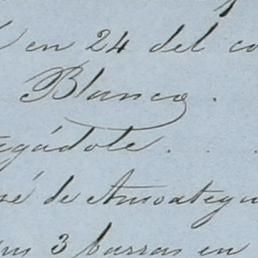 en 24 del co
Blanco.
egádote . . .
sé de Amoategu
3 barras en